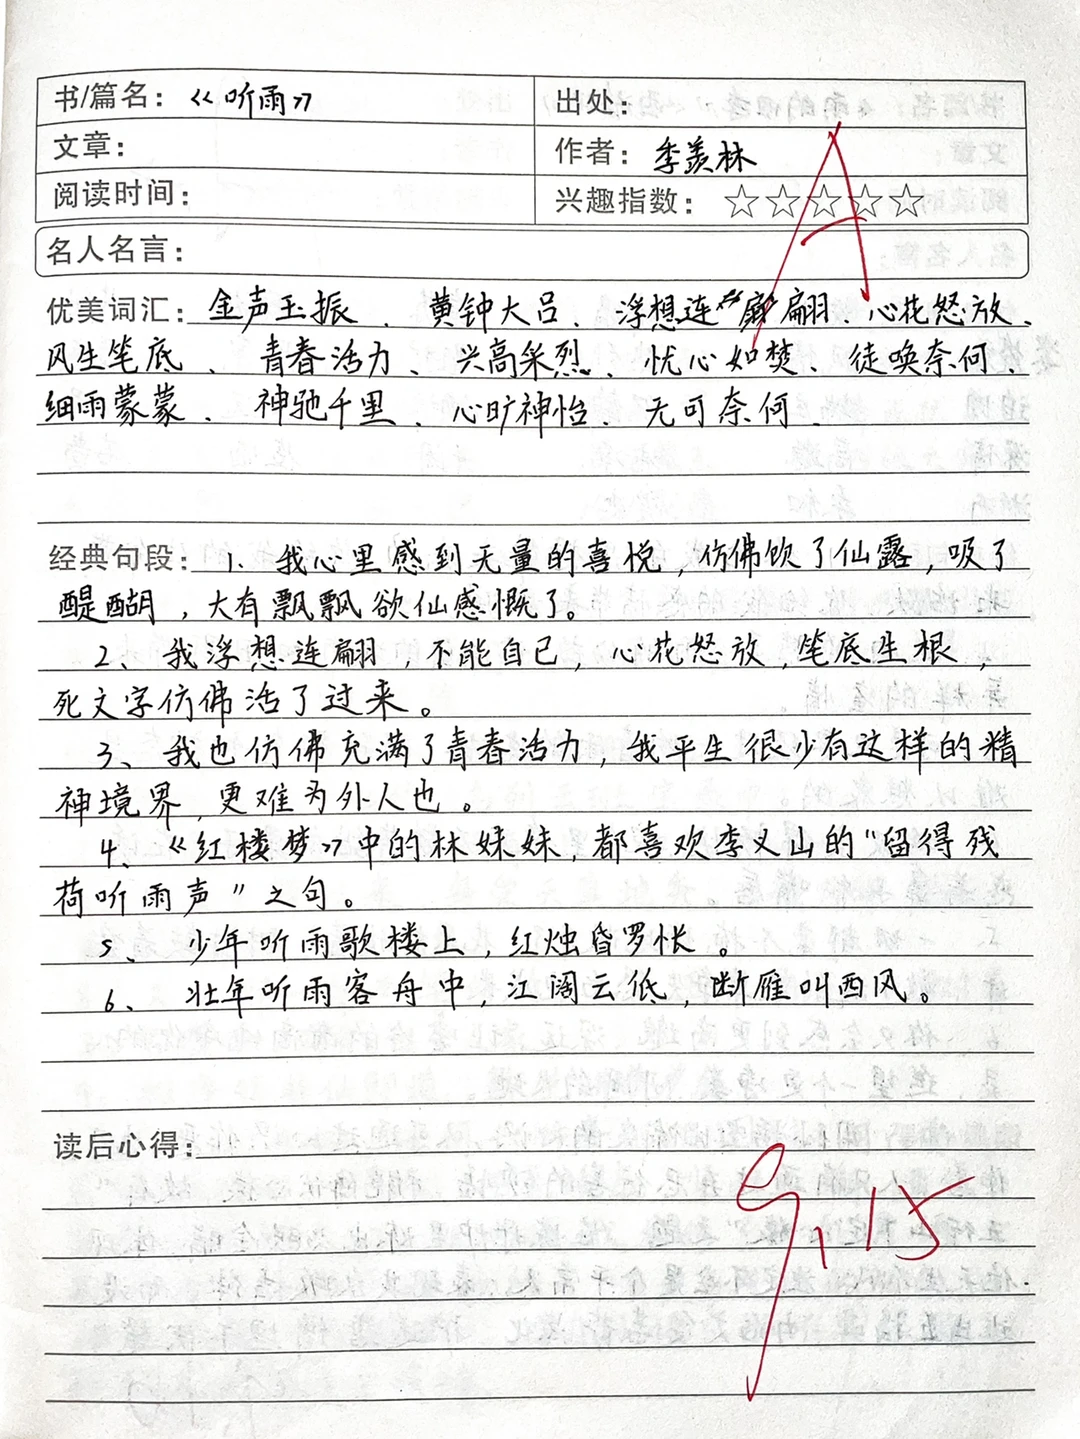 书/篇名：《听雨》 出处：
文章： 作者：季羡林
阅读时间： 兴趣指数：☆☆☆☆☆
A
名人名言：
优美词汇：金声玉振、黄钟大吕、浮想连翩、心花怒放、
风生笔底、青春活力、兴高采烈、忧心如焚、徒唤奈何、
细雨蒙蒙、神驰千里、心旷神怡、无可奈何、
经典句段：1、我心里感到无量的喜悦，仿佛饮了仙露，吸了
醍醐，大有飘飘欲仙感慨了。
2、我浮想连翩，不能自已，心花怒放，笔底生根，
死文字仿佛活了过来。
3、我也仿佛充满了青春活力，我平生很少有这样的精
神境界，更难为外人也。
4、《红楼梦》中的林妹妹，都喜欢李义山的“留得残
荷听雨声”之句。
5、少年听雨歌楼上，红烛昏罗怅。
6、壮年听雨客舟中，江阔云低，断雁叫西风。
读后心得：
9,15